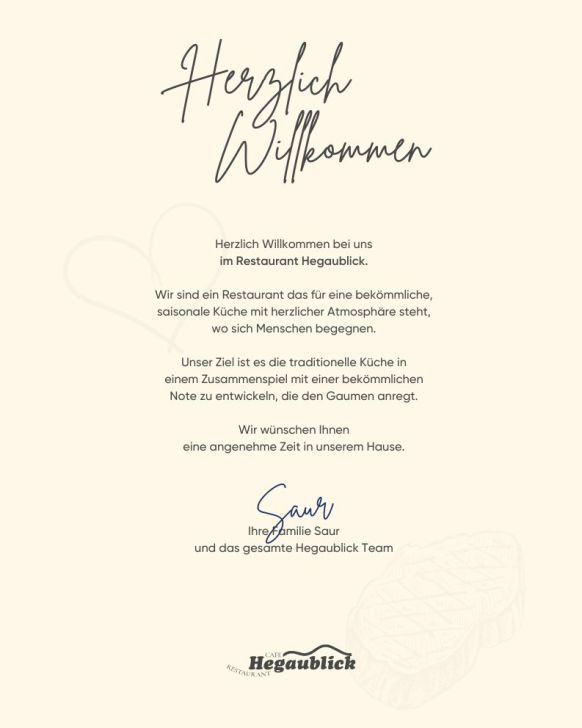 Herzlich
Willkommen
Herzlich Willkommen bei uns
im Restaurant Hegaublick.
Wir sind ein Restaurant das für eine bekömmliche,
saisonale Küche mit herzlicher Atmosphäre steht,
wo sich Menschen begegnen.
Unser Ziel ist es die traditionelle Küche in
einem Zusammenspiel mit einer bekömmlichen
Note zu entwickeln, die den Gaumen anregt.
Wir wünschen Ihnen
eine angenehme Zeit in unserem Hause.
Saur
Ihre Familie Saur
und das gesamte Hegaublick Team
CAFE
Hegaublick
RESTAURANT